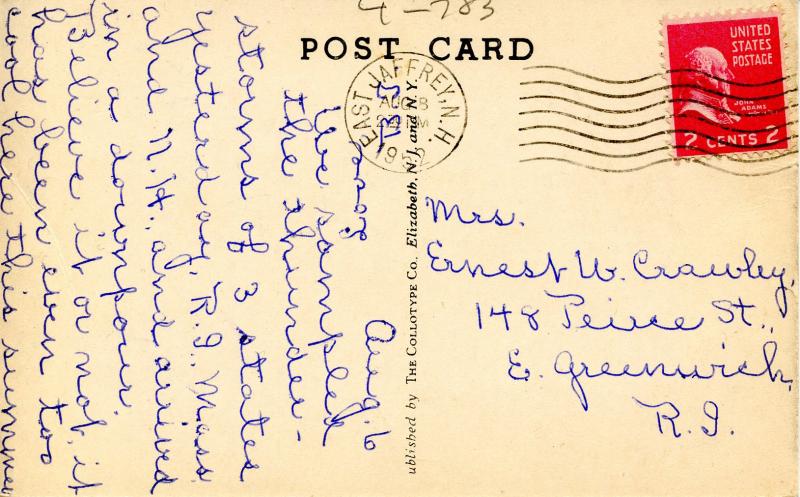 4-783
POST CARD
EAST JAFFREY, N.H.
AUG 8
1952
UNITED
STATES
POSTAGE
JOHN
ADAMS
2 CENTS 2
Mrs.
Ernest W. Crawley,
148 Peirce St.,
E. Greenwich,
R.I.
ublished by THE COLLOTYPE CO. Elizabeth, N.J. and N.Y.
Aug. 6
We sampled
the thunder-
storms of 3 states
yesterday, R.I., Mass.
and N.H., and arrived
in a downpour.
Believe it or not, it
has been even too
cool here this summer